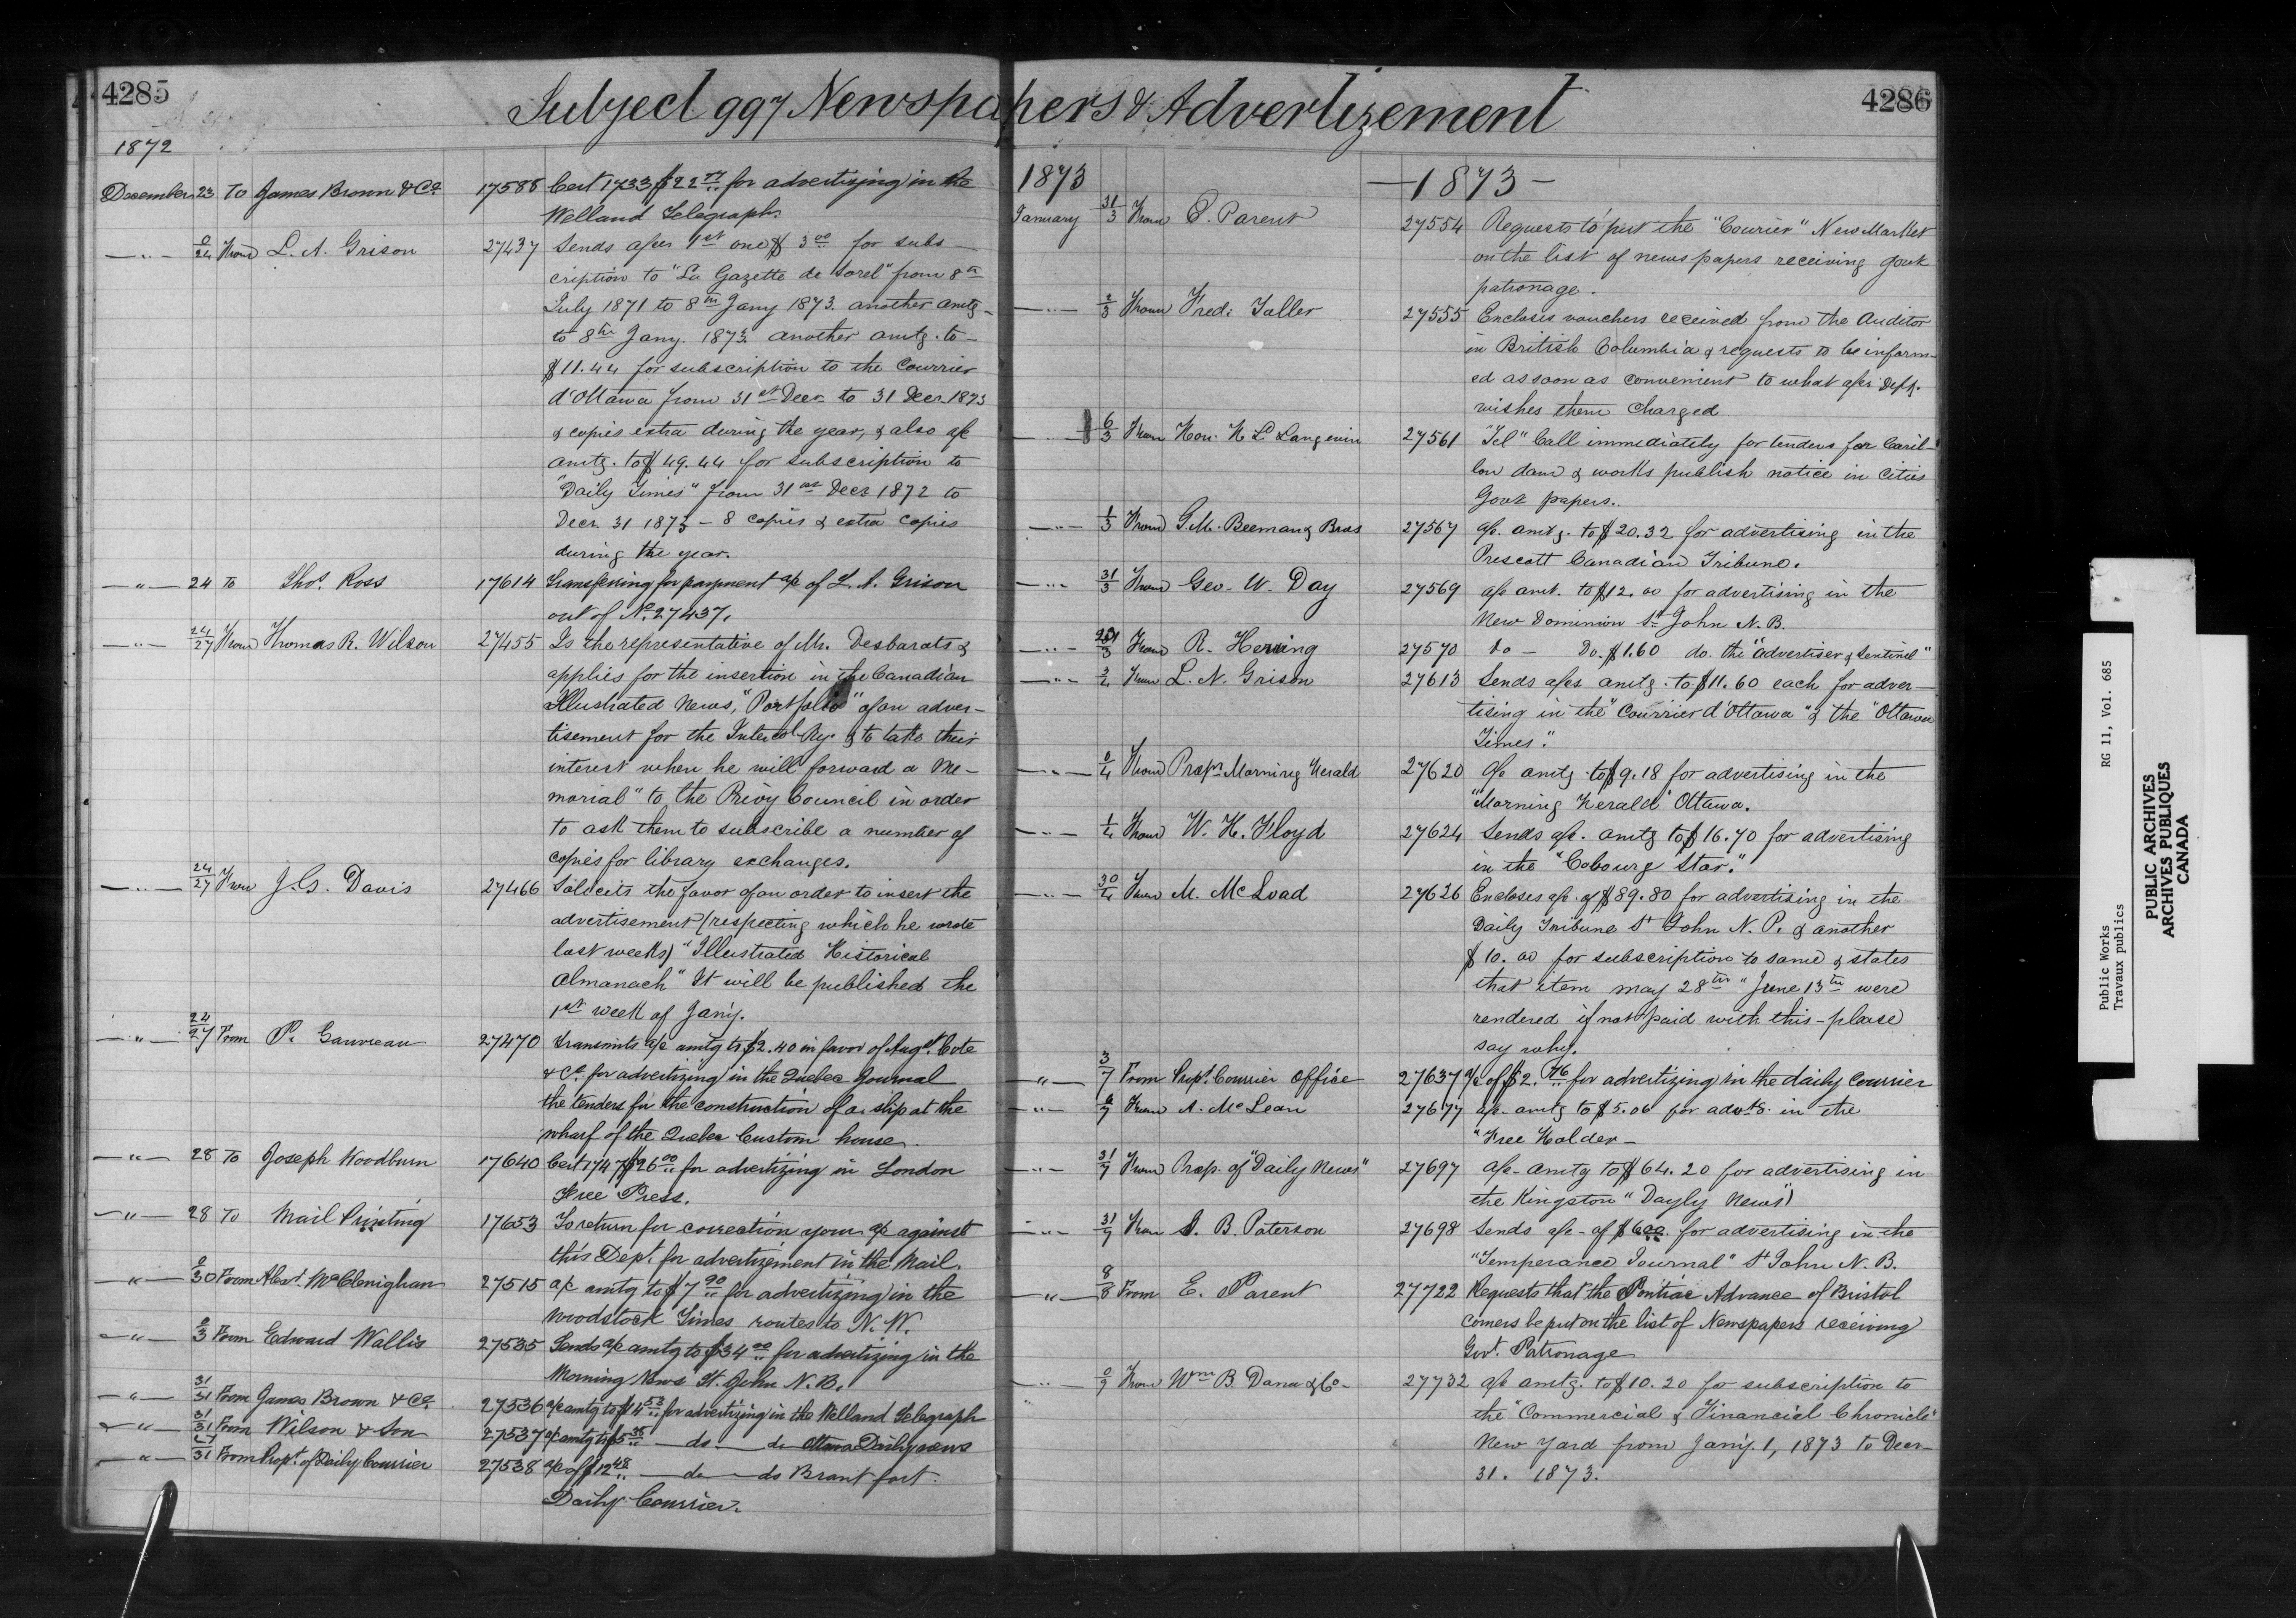 4285
Subject 997 Newspapers & Advertizement
4286
1872
December 23 To James Brown & Co. 17588 Cert 1733 $22 for advertizing in the
Welland Telegraph.
" 24 From L. N. Grison 27437 Sends a/cs 1st one $3.00 for subs-
cription to "La Gazette de Sorel" from 8th
July 1871 to 8th Jany 1873. another amtg-
to 8th Jany. 1873. another amtg. to-
$11.44 for subscription to the Courrier
d'Ottawa from 31st Decr. to 31 Decr. 1873
& copies extra during the year, & also a/c
amtg. to $49.44 for subscription to
"Daily Times" from 31st Decr 1872 to
Decr. 31 1873 - 8 copies & extra copies
during the year.
" 24 To Thos. Ross 17614 Transferring for payment a/c of L. N. Grison
out of No. 27437.
" 24/27 From Thomas R. Wilson 27455 Is the representative of Mr. Desbarats &
applies for the insertion in the Canadian
Illustrated News, "Portfolio" of an adver-
tisement for the Intercol. Ry. & to take their
interest when he will forward a Me-
morial" to the Privy Council in order
to ask them to subscribe a number of
copies for library exchanges.
" 24/27 From J. G. Davis 27466 Solicits the favor of an order to insert the
advertisement (respecting which he wrote
last weeks) "Illustrated Historical
Almanach" It will be published the
1st week of Jany.
" 24/27 From P. Gauvreau 27470 Transmits a/c amtg to $2.40 in favor of Augt. Cote
& Co. for advertizing in the Quebec Journal
the tenders for the construction of a slip at the
wharf of the Quebec Custom house.
" 28 To Joseph Woodburn 17640 Cert 1747 $26.00 for advertizing in London
Free Press.
" 28 To Mail Printing 17653 To return for correction your a/c against
this Dept. for advertizement in the Mail.
" 30 From Alexr. McClenighan 27515 a/c amtg to $7.90 for advertizing in the
Woodstock Times routes to N. W.
" 3 From Edward Wallis 27535 Sends a/c amtg to $34.00 for advertizing in the
Morning News St. John N. B.
" 31/31 From James Brown & Co. 27536 a/c amtg to $14.52 for advertizing in the Welland Telegraph
" 31/31 From Wilson & Son 27537 a/c amtg to $5 do. do Ottawa Daily news
" 27/31 From Propt. of Daily Courrier 27538 a/c of $12.48 do do Brant fort.
Daily Courrier.
1873
-1873-
January 31/3 From E. Parent 27554 Requests to put the "Courier" New Market
on the list of news papers receiving govt
patronage.
" 2/3 From Fred: Taller 27555 Encloses vouchers received from the Auditor
in British Columbia & requests to be inform-
ed as soon as convenient to what a/cs Dept.
wishes them charged
" 6/3 From Hon. H L Langevin 27561 "Tel" Call immediately for tenders for Caril-
lon dam & works publish notice in Cities
Govt papers.
" 1/3 From G. M. Beeman & Bros 27567 a/c. amtg. to $20.32 for advertising in the
Prescott Canadian Tribune.
" 31/3 From Geo. W. Day 27569 a/c amt. to $12.00 for advertising in the
New Dominion St John N. B.
" From R. Herring 27570 do - Do. $1.60 do. the "advertiser & Sentinel"
" 2/4 From L. N. Grison 27613 Sends a/cs amtg. to $11.60 each for adver-
tising in the "Courrier d'Ottawa" & the "Ottawa
Times".
" 0/4 From Propr. Morning Herald 27620 a/c amtg. to $9.18 for advertising in the
"Morning Herald" Ottawa.
" 1/4 From W. H. Floyd 27624 Sends a/c. amtg to $16.70 for advertising
in the "Cobourg Star."
" 30/4 From M. McLoad 27626 Encloses a/c. of $89.80 for advertising in the
Daily Tribune St John N. P. & another
$10.00 for subscription to same & states
that item may 28th " June 13th were
rendered if not paid with this - please
say why.
" 3/7 From Propt. Courrier Office 27637 a/c of $2.76 for advertizing in the daily Courrier
" 6/7 From A. McLean 27677 a/c- amtg to $5.06 for advts. in the
"Free Holder-
" 31/7 From Prop. of "Daily News" 27697 a/c- amtg to $64.20 for advertising in
the Kingston "Dayly News")
" 31/7 From S. B. Paterson 27698 Sends a/c- of $6.00. for advertising in the
"Temperance Journal" St John N. B.
" 8/8 From E. Parent 27722 Requests that the Pontiac Advance of Bristol
Corners be put on the list of Newspapers receiving
Govt. Patronage
" 0/9 From Wm B. Dana & Co- 27732 a/c amtg. to $10.20 for subscription to
the "Commercial & Financial Chronicle"
New Yard from Jany. 1, 1873 to Decr-
31. 1873.
Public Works RG 11, Vol. 685
Travaux publics
PUBLIC ARCHIVES
ARCHIVES PUBLIQUES
CANADA